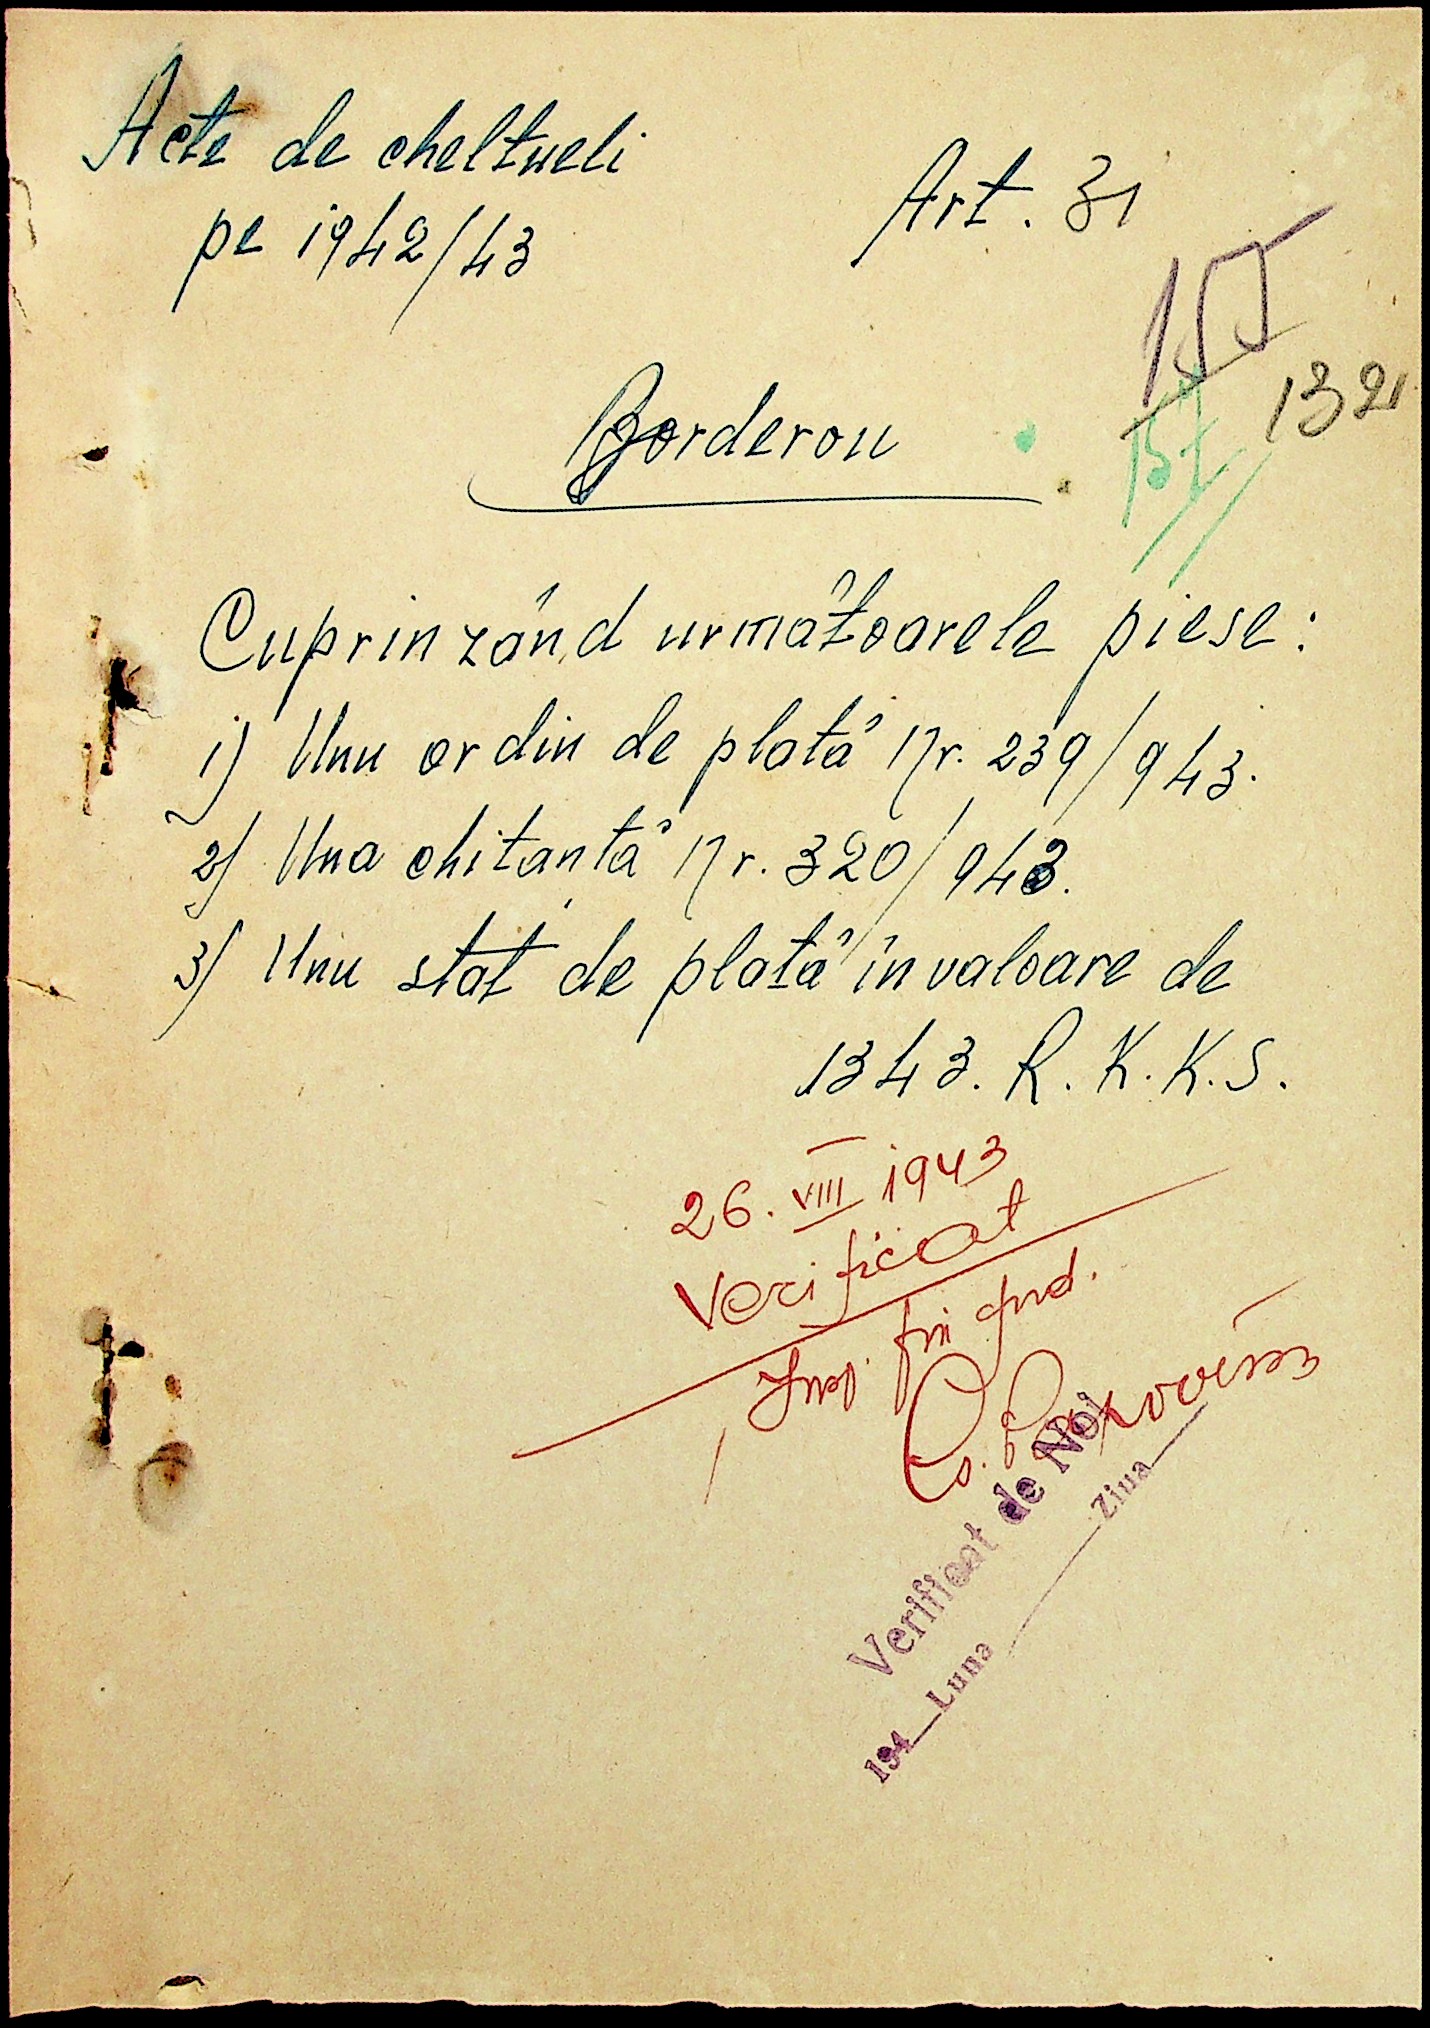 Acte de cheltueli
pe 1942/43
Art. 31
1321
Borderou
Cuprinzând următoarele piese:
1) Unu ordin de plată Nr. 239/943.
2) Una chitanță Nr. 320/943.
3) Unu stat de plată în valoare de
1343. R.K.K.S.
26. VIII 1943
Verificat
Insp. fin
Verificat de Noi
194_Luna Ziua